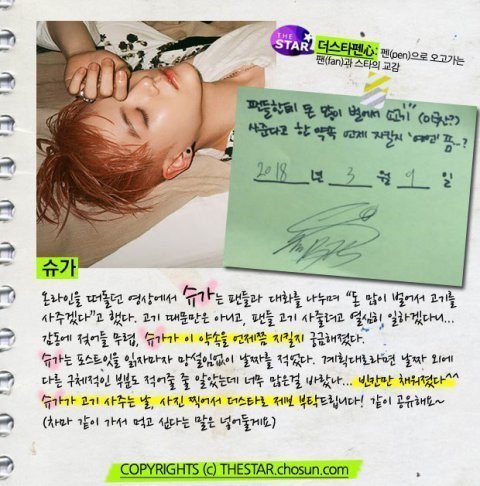 THE STAR
더스타펜心: 펜(pen)으로 오고가는
팬(fan)과 스타의 교감
팬들한테 돈 많이 벌어서 "고기"
사준다고 한 약속 언제 지킬지 '예고' 쫌~?
2018 년 3 월 9 일
슈가
온라인을 떠돌던 영상에서 슈가는 팬들과 대화를 나누며 "돈 많이 벌어서 고기를
사주겠다"고 했다. 고기 때문만은 아니고, 팬들 고기 사줄려고 열심히 일하겠다니...
감동에 젖어들 무렵, 슈가가 이 약속을 언제쯤 지킬지 궁금해졌다.
슈가는 포스트잇을 읽자마자 망설임없이 날짜를 적었다. 계획대로라면 날짜 외에
다른 구체적인 부분도 적어줄 줄 알았는데 너무 많은걸 바랐나... 빈칸만 채워졌다^^
슈가가 고기 사주는 날, 사진 찍어서 더스타로 제보 부탁드립니다! 같이 공유해요~
(차마 같이 가서 먹고 싶다는 말은 넣어둘게요)
COPYRIGHTS (c) THESTAR.chosun.com